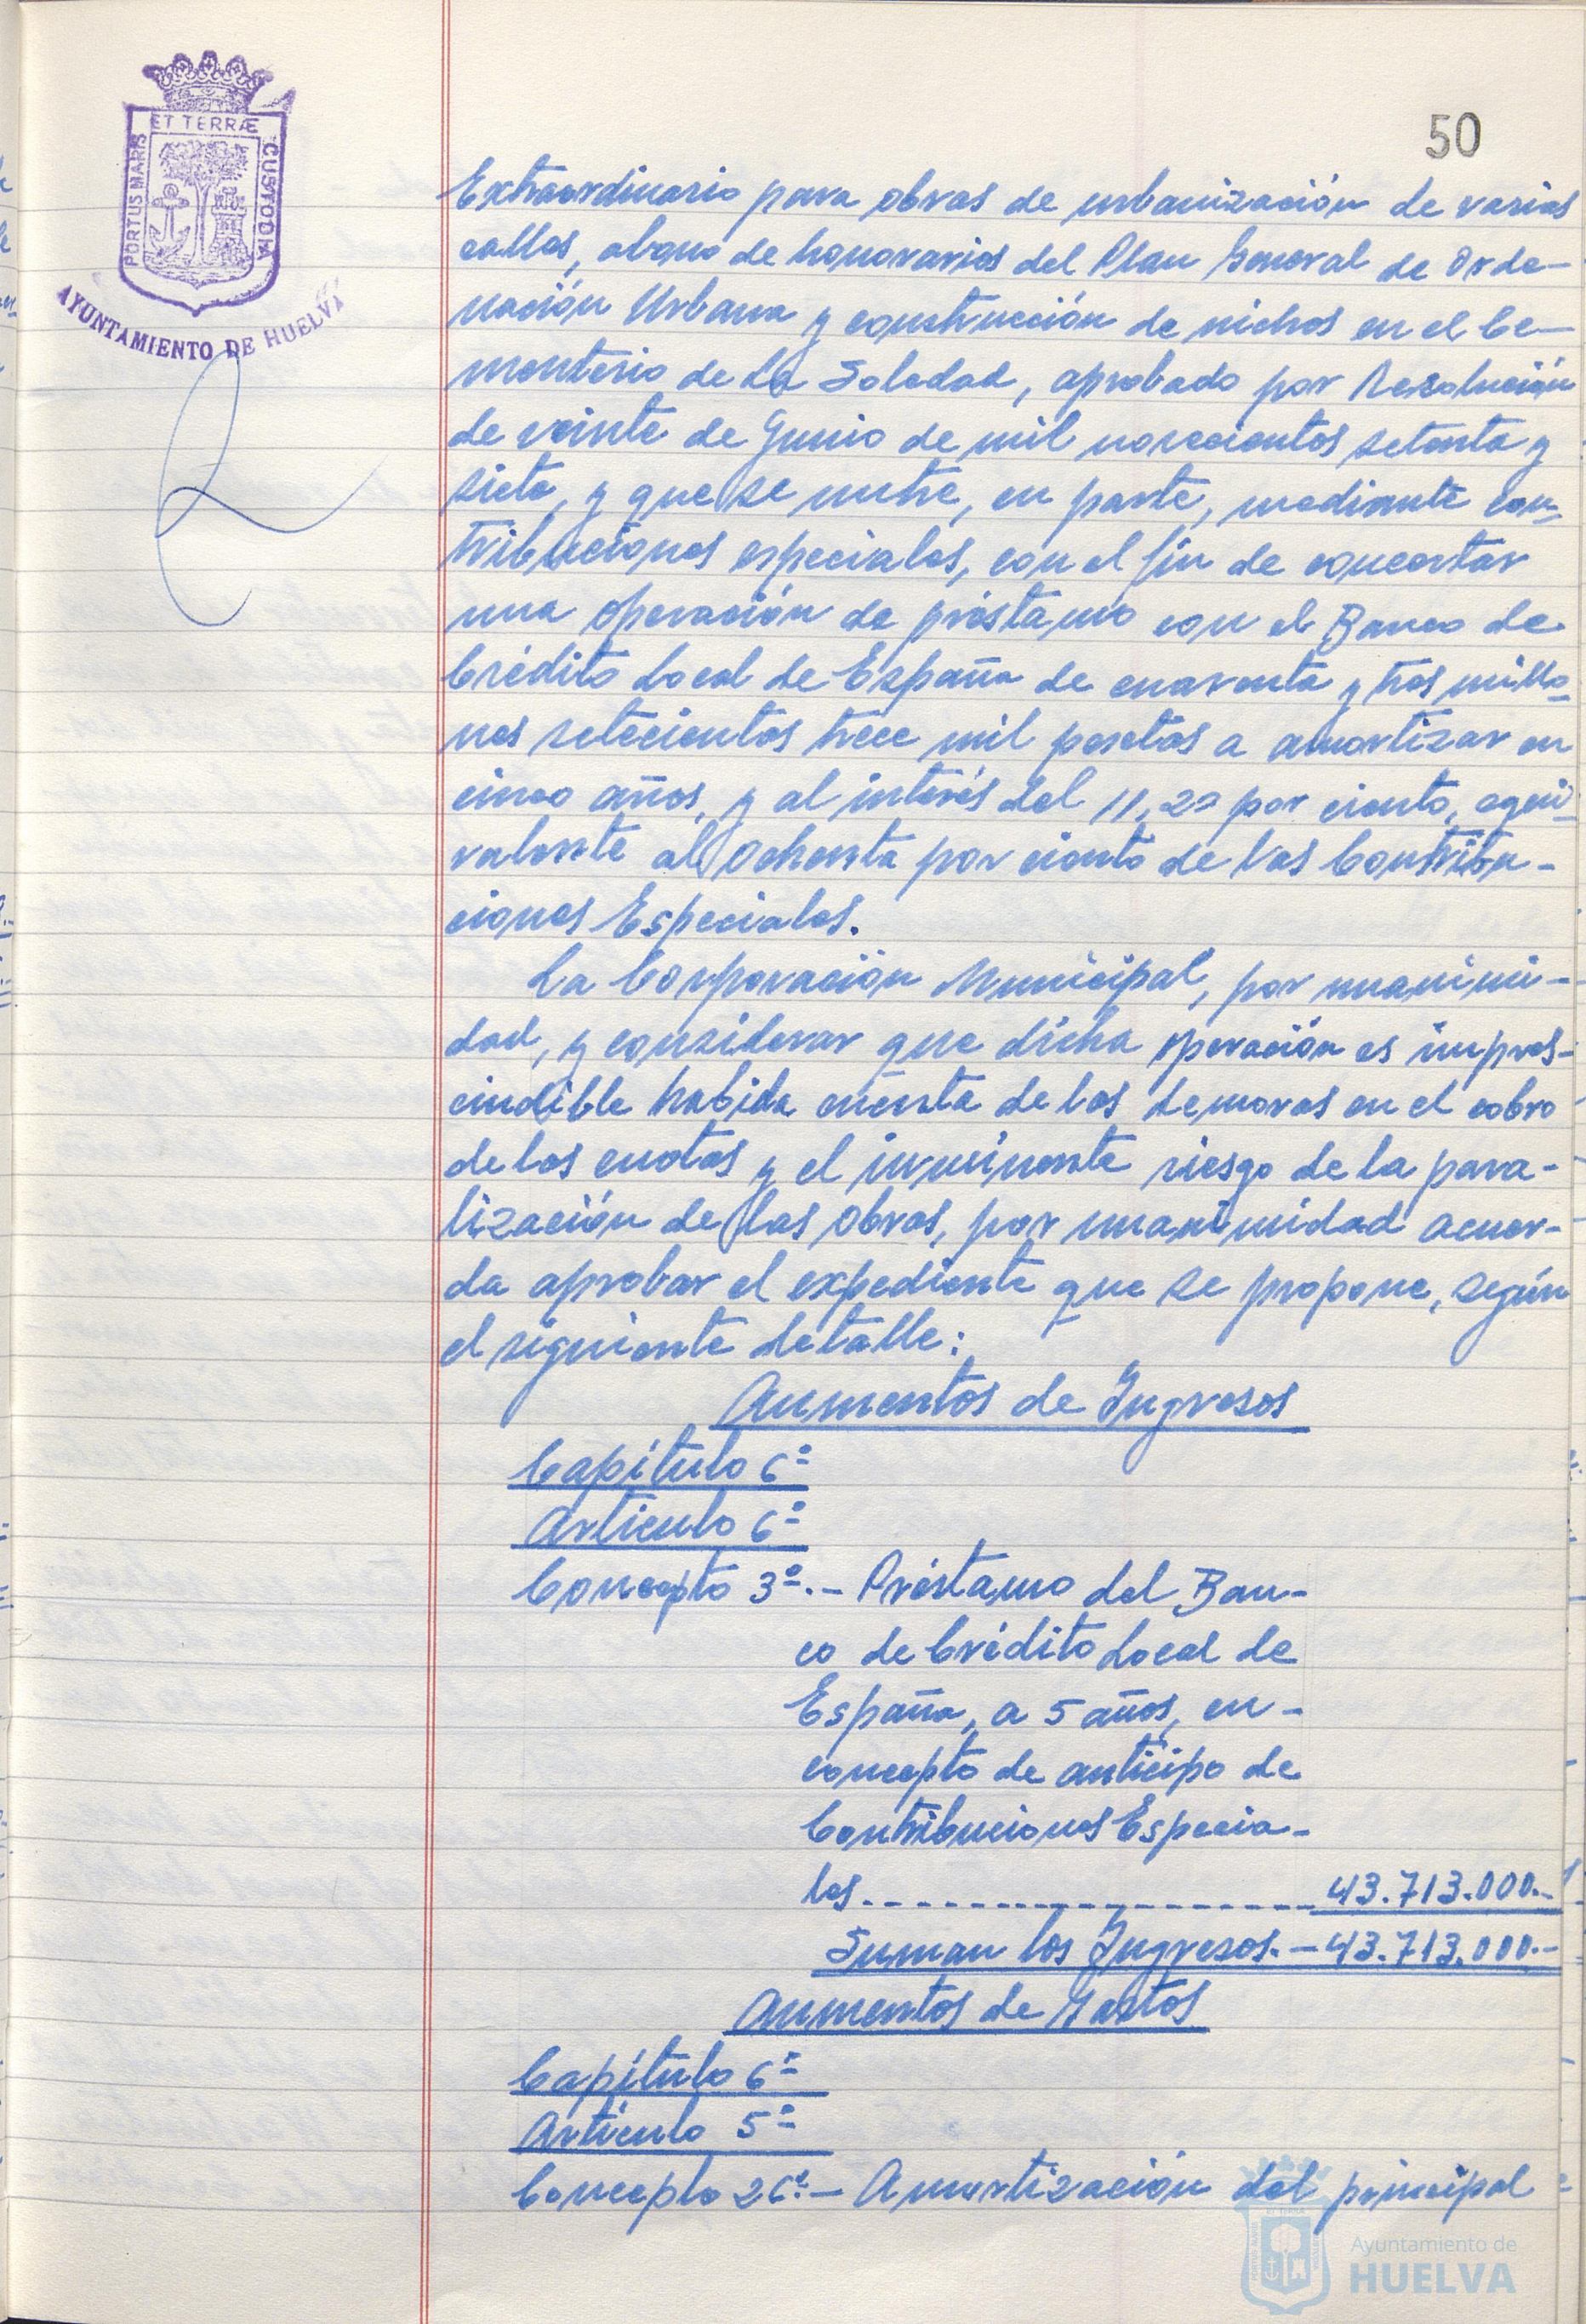 ET TERRÆ
PORTUS MARIS
CUSTODIA
AYUNTAMIENTO DE HUELVA
50
Extraordinario para obras de urbanización de varias
calles, abono de honorarios del Plan General de Orde-
nación Urbana y construcción de nichos en el Ce-
menterio de La Soledad, aprobado por Resolución
de veinte de Junio de mil novecientos setenta y
siete, y que se nutre, en parte, mediante con-
tribuciones especiales, con el fin de concertar
una operación de préstamo con el Banco de
Crédito Local de España de cuarenta y tres millo-
nes setecientas trece mil pesetas a amortizar en
cinco años, y al interés del 11,20 por ciento, equi-
valente al Ochenta por ciento de las Contribu-
ciones Especiales.
La Corporación Municipal, por unanimi-
dad, y considerar que dicha operación es impres-
cindible habida cuenta de las demoras en el cobro
de las cuotas y el inminente riesgo de la para-
lización de las obras, por unanimidad acuer-
da aprobar el expediente que se propone, según
el siguiente detalle:
Aumentos de Ingresos
Capítulo 6º
Artículo 6º
Concepto 3º.- Préstamo del Ban-
co de Crédito Local de
España, a 5 años, en-
concepto de anticipo de
Contribuciones Especia-
les.------------------ 43.713.000.-
Suman los Ingresos.- 43.713.000.-
Aumentos de Gastos
Capítulo 6º
Artículo 5º
Concepto 26º- Amortización del principal
Ayuntamiento de
HUELVA